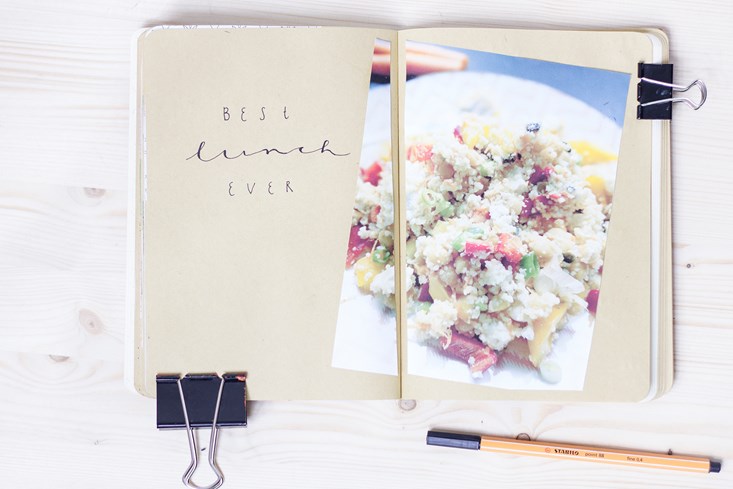 BEST
lunch
EVER
STABILO point 88 fine 0,4